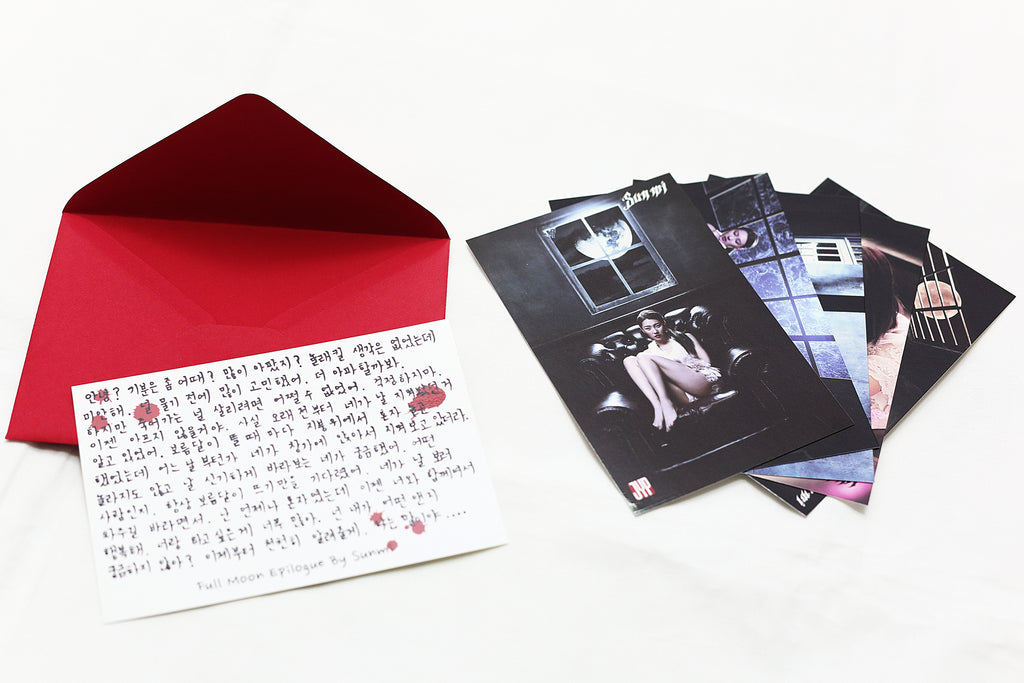 안녕? 기분은 좀 어때? 많이 아팠지? 놀래킬 생각은 없었는데
미안해. 널 물기 전에 많이 고민했어. 더 아파할까봐.
하지만 죽어가는 널 살리려면 어쩔 수 없었어. 걱정하지마.
이젠 아프지 않을거야. 사실 오래 전부터 네가 날 지켜봤던 거
알고 있었어. 보름달이 뜰 때 마다 지붕위에서 혼자 놀고
했었는데 어느날 부턴가 네가 창가에 앉아서 지켜보고 있더라.
놀라지도 않고 날 신기하게 바라보는 네가 궁금했어. 어떤
사람인지. 항상 보름달이 뜨기만을 기다렸어. 네가 날 보러
와주길 바라면서. 난 언제나 혼자였는데 이젠 너와 함께여서
행복해. 너랑 하고 싶은게 너무 많아. 넌 내가 어떤 앤지
궁금하지 않아? 이제부터 천천히 알려줄게. 나는 말이야....
Full Moon Epilogue By Sunmi
Sunmi
JYP